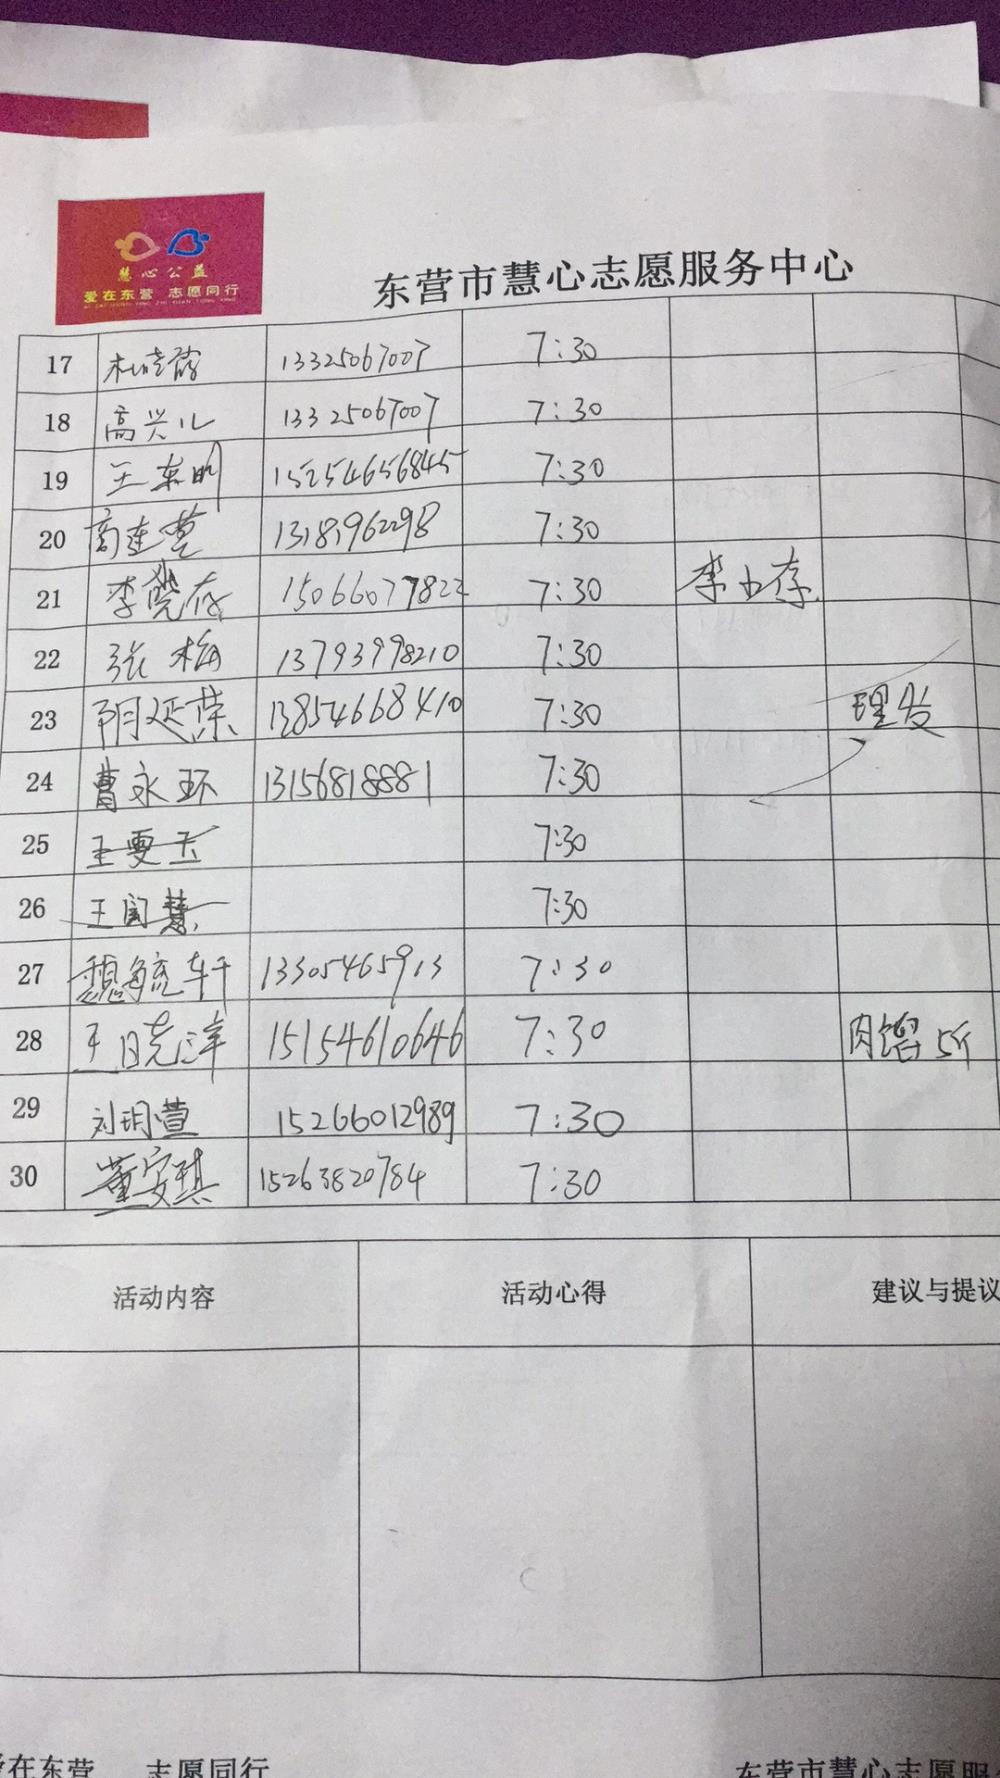 慧心公益
爱在东营 志愿同行
东营市慧心志愿服务中心
17 13325067007 7:30
18 高兴儿 13325067007 7:30
19 王东明 15254656845 7:30
20 7:30
21 李晓存 15066077822 7:30
22 张梅 13793998210 7:30
23 阴延荣 13854668410 7:30 理发
24 曹永环 13156818881 7:30
25 王雯玉 7:30
26 王闰慧 7:30
27 魏毓轩 13305465913 7:30
28 王晓洋 15154610646 7:30 肉馅5斤
29 刘玥萱 15266012989 7:30
30 董安琪 15263820784 7:30
活动内容 活动心得 建议与提议
爱在东营 志愿同行 东营市慧心志愿服